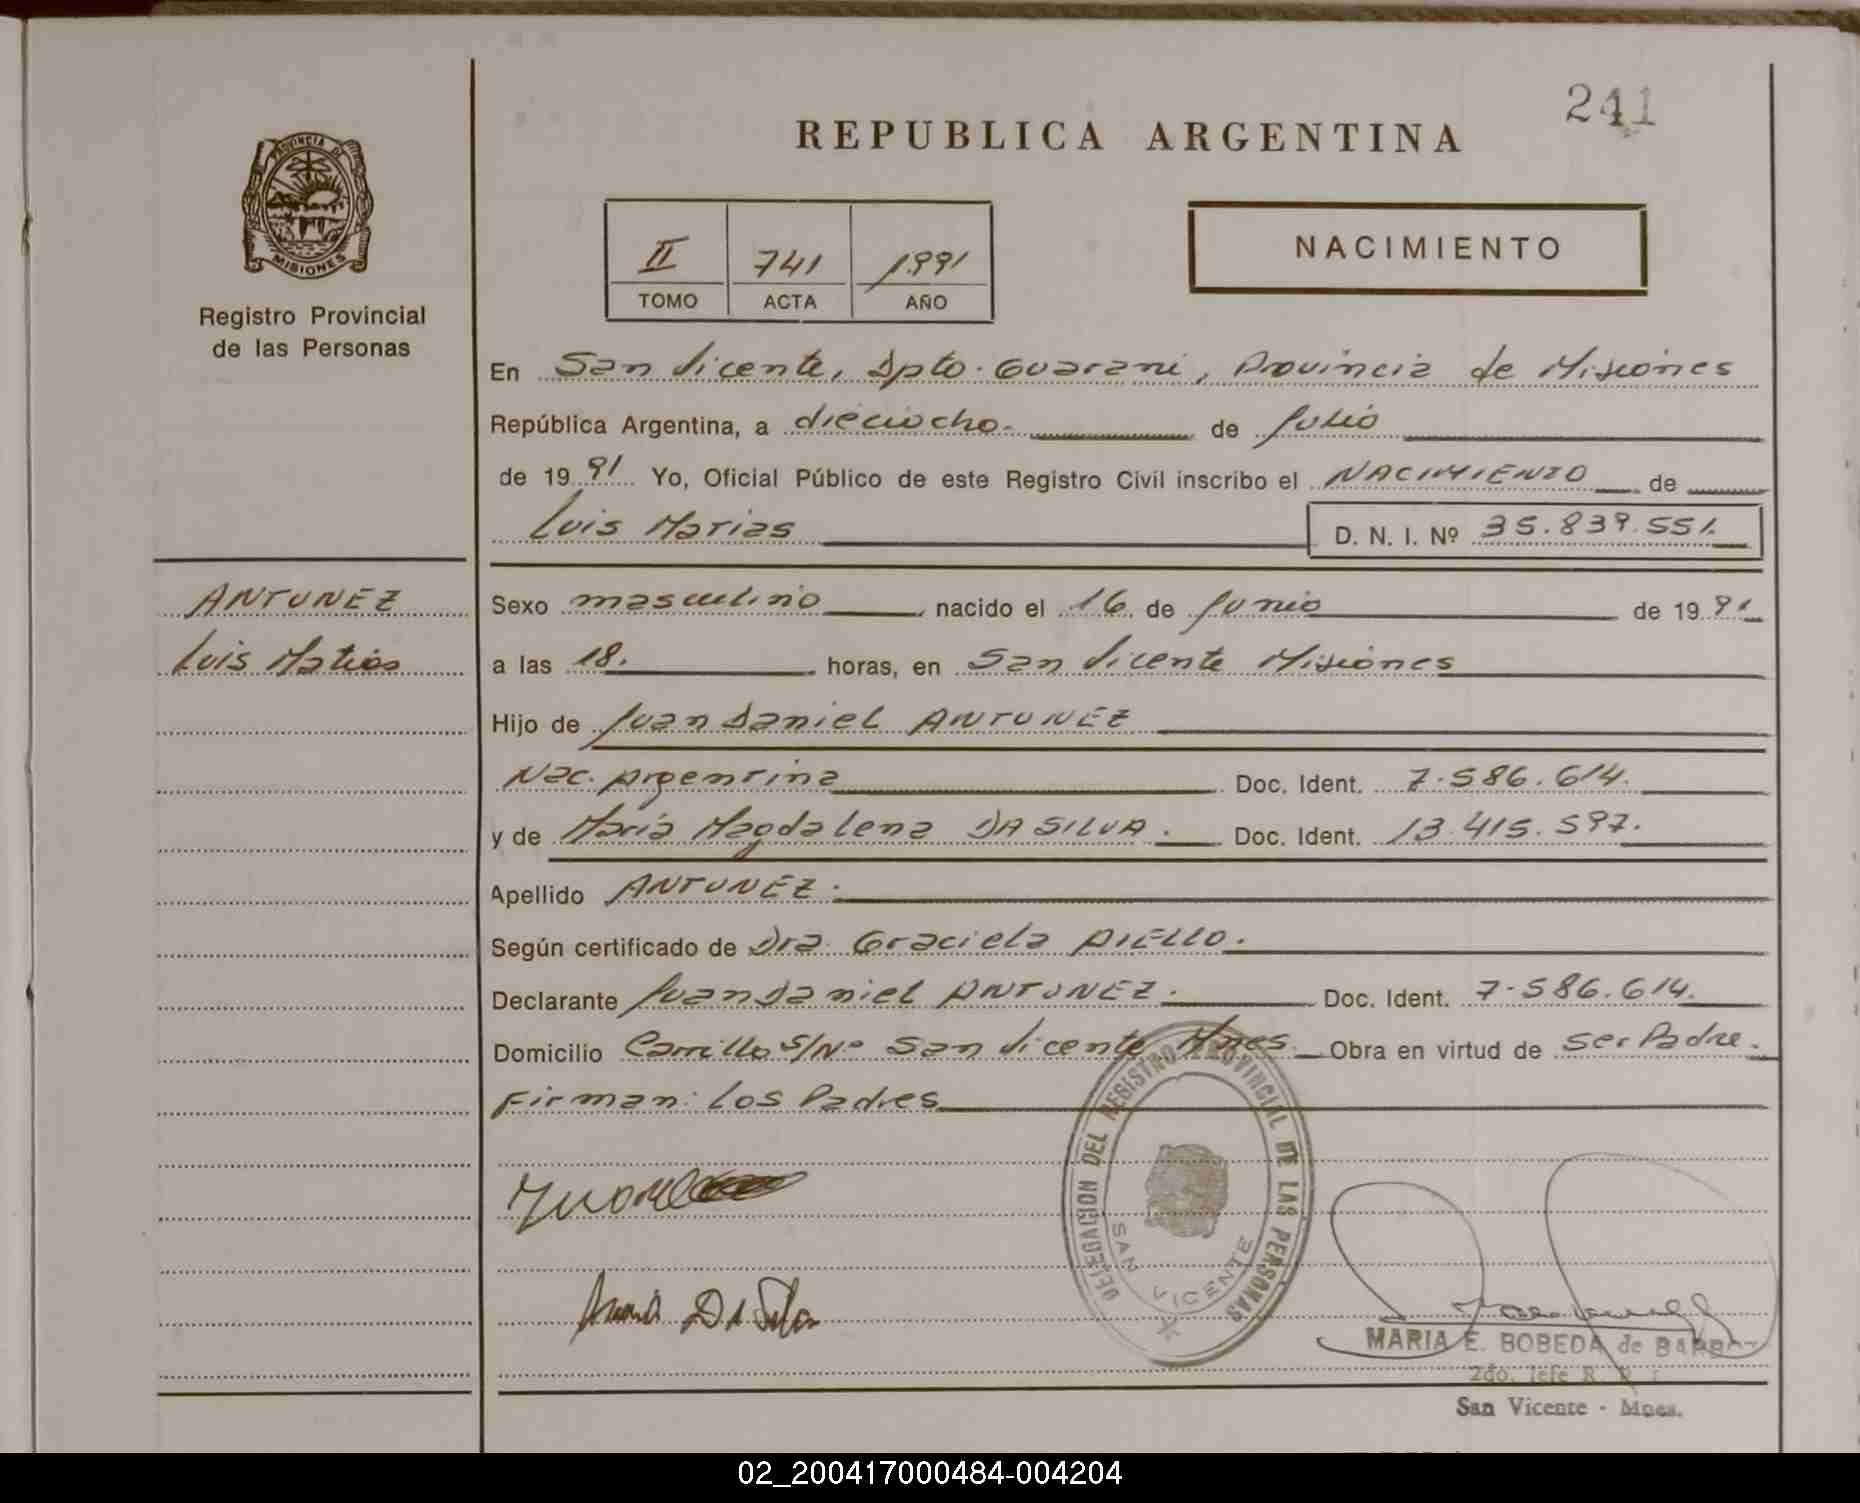 241
REPUBLICA ARGENTINA
PROVINCIA DE
MISIONES
Registro Provincial
de las Personas
II 741 1991
TOMO ACTA AÑO
NACIMIENTO
En San Vicente, Dpto. Guarani, Provincia de Misiones
República Argentina, a dieciocho. de Julio
de 1991 Yo, Oficial Público de este Registro Civil inscribo el NACIMIENTO de
Luis Marias D. N. I. Nº 35.839.551.
ANTUNEZ
Luis Matias
Sexo masculino nacido el 16 de Junio de 1991
a las 18. horas, en San Vicente Misiones
Hijo de Juan Daniel ANTUNEZ
Nac. Argentina Doc. Ident. 7.586.614.
y de Maria Magdalena DA SILVA. Doc. Ident. 13.415.597.
Apellido ANTUNEZ.
Según certificado de Dra. Graciela AIELLO.
Declarante Juan Daniel ANTUNEZ. Doc. Ident. 7.586.614.
Domicilio Carrillo S/Nº San Vicente Mnes. Obra en virtud de ser Padre.
Firman: Los Padres
DELEGACION DEL REGISTRO PROVINCIAL DE LAS PERSONAS
SAN VICENTE
Maria Da Silva
MARIA E. BOBEDA de
2do. Jefe R. P.
San Vicente - Mnes.
02_200417000484-004204